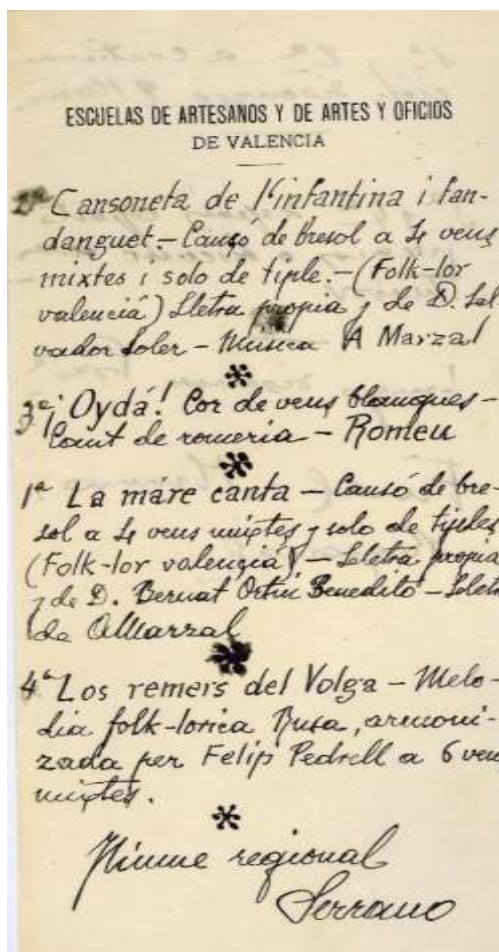 ESCUELAS DE ARTESANOS Y DE ARTES Y OFICIOS
DE VALENCIA
2ª Cansoneta de l'infantina i fan-
danguet. – Cansó de bresol a 4 veus
mixtes i solo de tiple. – (Folk-lor
valenciá) Lletra propia y de D. Sal
vador Soler – Música A Marzal
3ª ¡Oydá! Cor de veus blanques –
Cant de romeria – Romeu
1ª La máre canta – Cansó de bre-
sol a 4 veus mixtes y solo de tiples
(Folk-lor valenciá) – Lletra propia
y de D. Bernat Ortín Benedito – Lletr
de A Marzal
4ª Los remers del Volga – Melo-
dia folk-lorica Rusa, armoni-
zada per Felip Pedrell a 6 veu
mixtes.
Himne regional
Serrano